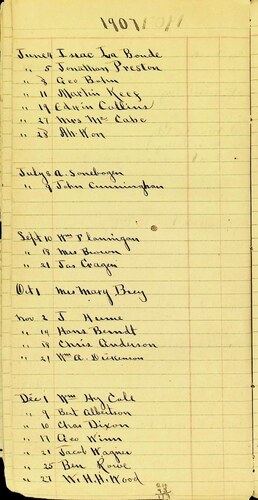 1907
June 4 Isac La Bonde
" 5 Jonathan Preston
" 8 Geo Bohn
" 11 Martin Keey
" 19 Edwin Collins
" 27 Mrs Mc Cabe
" 28 Ah Won
July 8 A. Sonebogen
" 9 John Cunningham
Sept 10 Wm Flannigan
" 18 Mrs Brown
" 21 Jas Cragen
Oct 1 Mrs Mary Brey
Nov 2 J Hume
" 14 Hans Berndt
" 18 Chris Anderson
" 21 Wm A. Dickenson
Dec 1 Wm Hy Cole
" 9 Bert Albertson
" 10 Chas Dixon
" 17 Geo Winn
" 21 Jacob Wagner
" 25 Ben Rowe
" 27 W. H. H. Wood